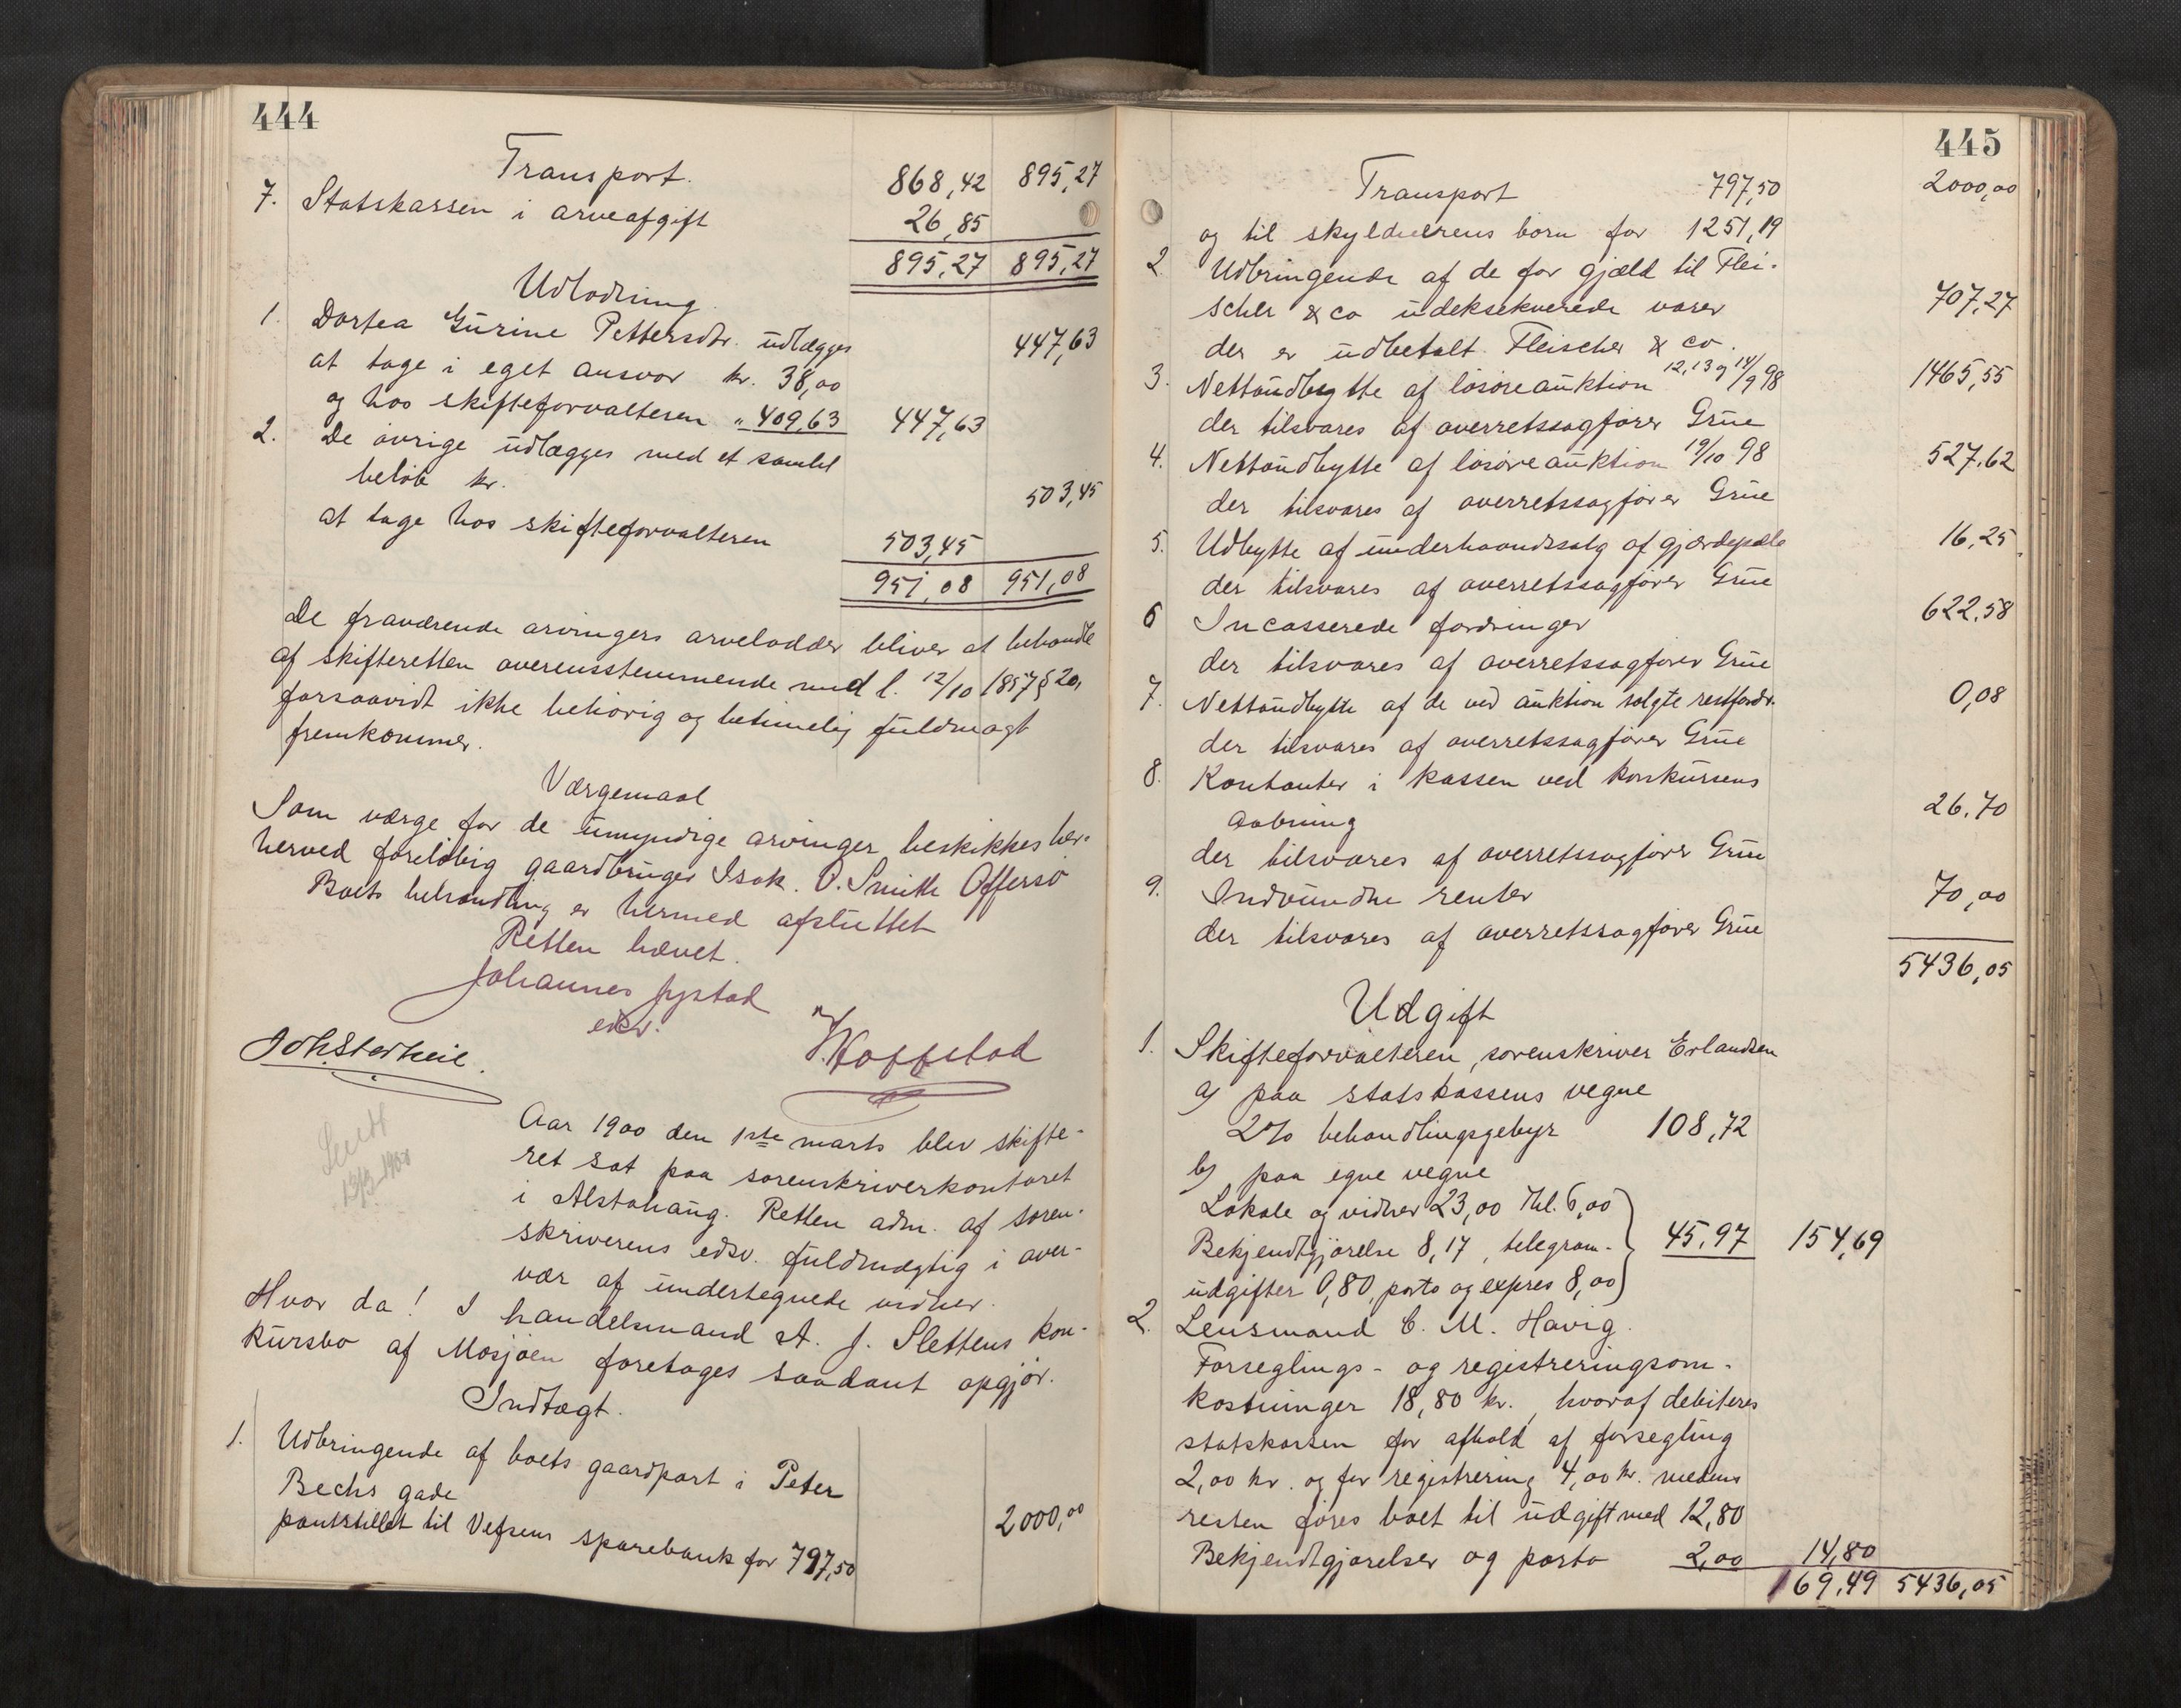 444
Transport. 868,42 895,27
7. Statskassen i arveafgift 26,85
895,27 895,27
Udlodning
1. Dortea Gurine Pettersdtr. udlægges 447,63
at tage i eget ansvar kr. 38,00
og hos skifteforvalteren " 409,63 447,63
2. De øvrige udlægges med et samlet
beløb kr. 503,45
at tage hos skifteforvalteren 503,45
951,08 951,08
De fraværende arvingers arvelodder bliver at behandle
af skifteretten overensstemmende med l. 12/10 1857 § 20,
forsaavidt ikke behørig og betimelig fuldmagt
fremkommer.
Værgemaal
Som værge for de umyndige arvinger beskikkes her-
herved foreløbig gaardbruger Isak. O. Smith Offersø
Boets behandling er hermed afsluttet
Retten hævet.
Johannes Jystad
edsv.
Joh. Storheil. Hoffstad
13/3-1900
Aar 1900 den 1ste marts blev skifte-
ret sat paa sorenskriverkontoret
i Alstahaug. Retten adm. af soren-
skriverens edsv. fuldmægtig i over-
vær af undertegnede vidner.
Hvor da! I handelsmand A. J. Slettens kon-
kursbo af Mosjøen foretages saadant opgjør.
Indtægt.
1. Udbringende af boets gaardpart i Peter
Bechs gade 2000,00
pantstillet til Vefsens sparebank for 797,50
445
Transport 797,50 2000,00
og til skyldnerens børn for 1251,19
2. Udbringende af de for gjæld til Flei-
scher & co udeksekverede varer 707,27
der er udbetalt Fleischer & co.
3. Nettoudbytte af løsøreauktion 12,13 og 14/9 98 1465,55
der tilsvares af overretssagfører Grue
4. Nettoudbytte af løsøreauktion 19/10 98 527,62
der tilsvares af overretssagfører Grue
5. Udbytte af underhaandssalg af gjærdepæle 16,25
der tilsvares af overretssagfører Grue
6 Incasserede fordringer 622,58
der tilsvares af overretssagfører Grue
7. Nettoudbytte af de ved auktion solgte restfordr. 0,08
der tilsvares af overretssagfører Grue
8. Kontanter i kassen ved konkursens
aabning 26,70
der tilsvares af overretssagfører Grue
9. Indvundne renter 70,00
der tilsvares af overretssagfører Grue
5436,05
Udgift
1. Skifteforvalteren, sorenskriver Erlandsen
a) paa statskassens vegne
2% behandlingsgebyr 108,72
b) paa egne vegne
Lokale og vidner 23,00 Thl. 6,00
Bekjendtgjørelse 8,17, telegram- 45,97 154,69
udgifter 0,80, porto og expres 8,00
2. Lensmand C. M. Havig.
Forseglings- og registreringsom-
kostninger 18,80 kr., hvoraf debiteres
statskassen for afhold af forsegling
2,00 kr. og for registrering 4,00 kr. medens
resten føres boet til udgift med 12,80
Bekjendtgjørelser og porto 2,00 14,80
169,49 5436,05